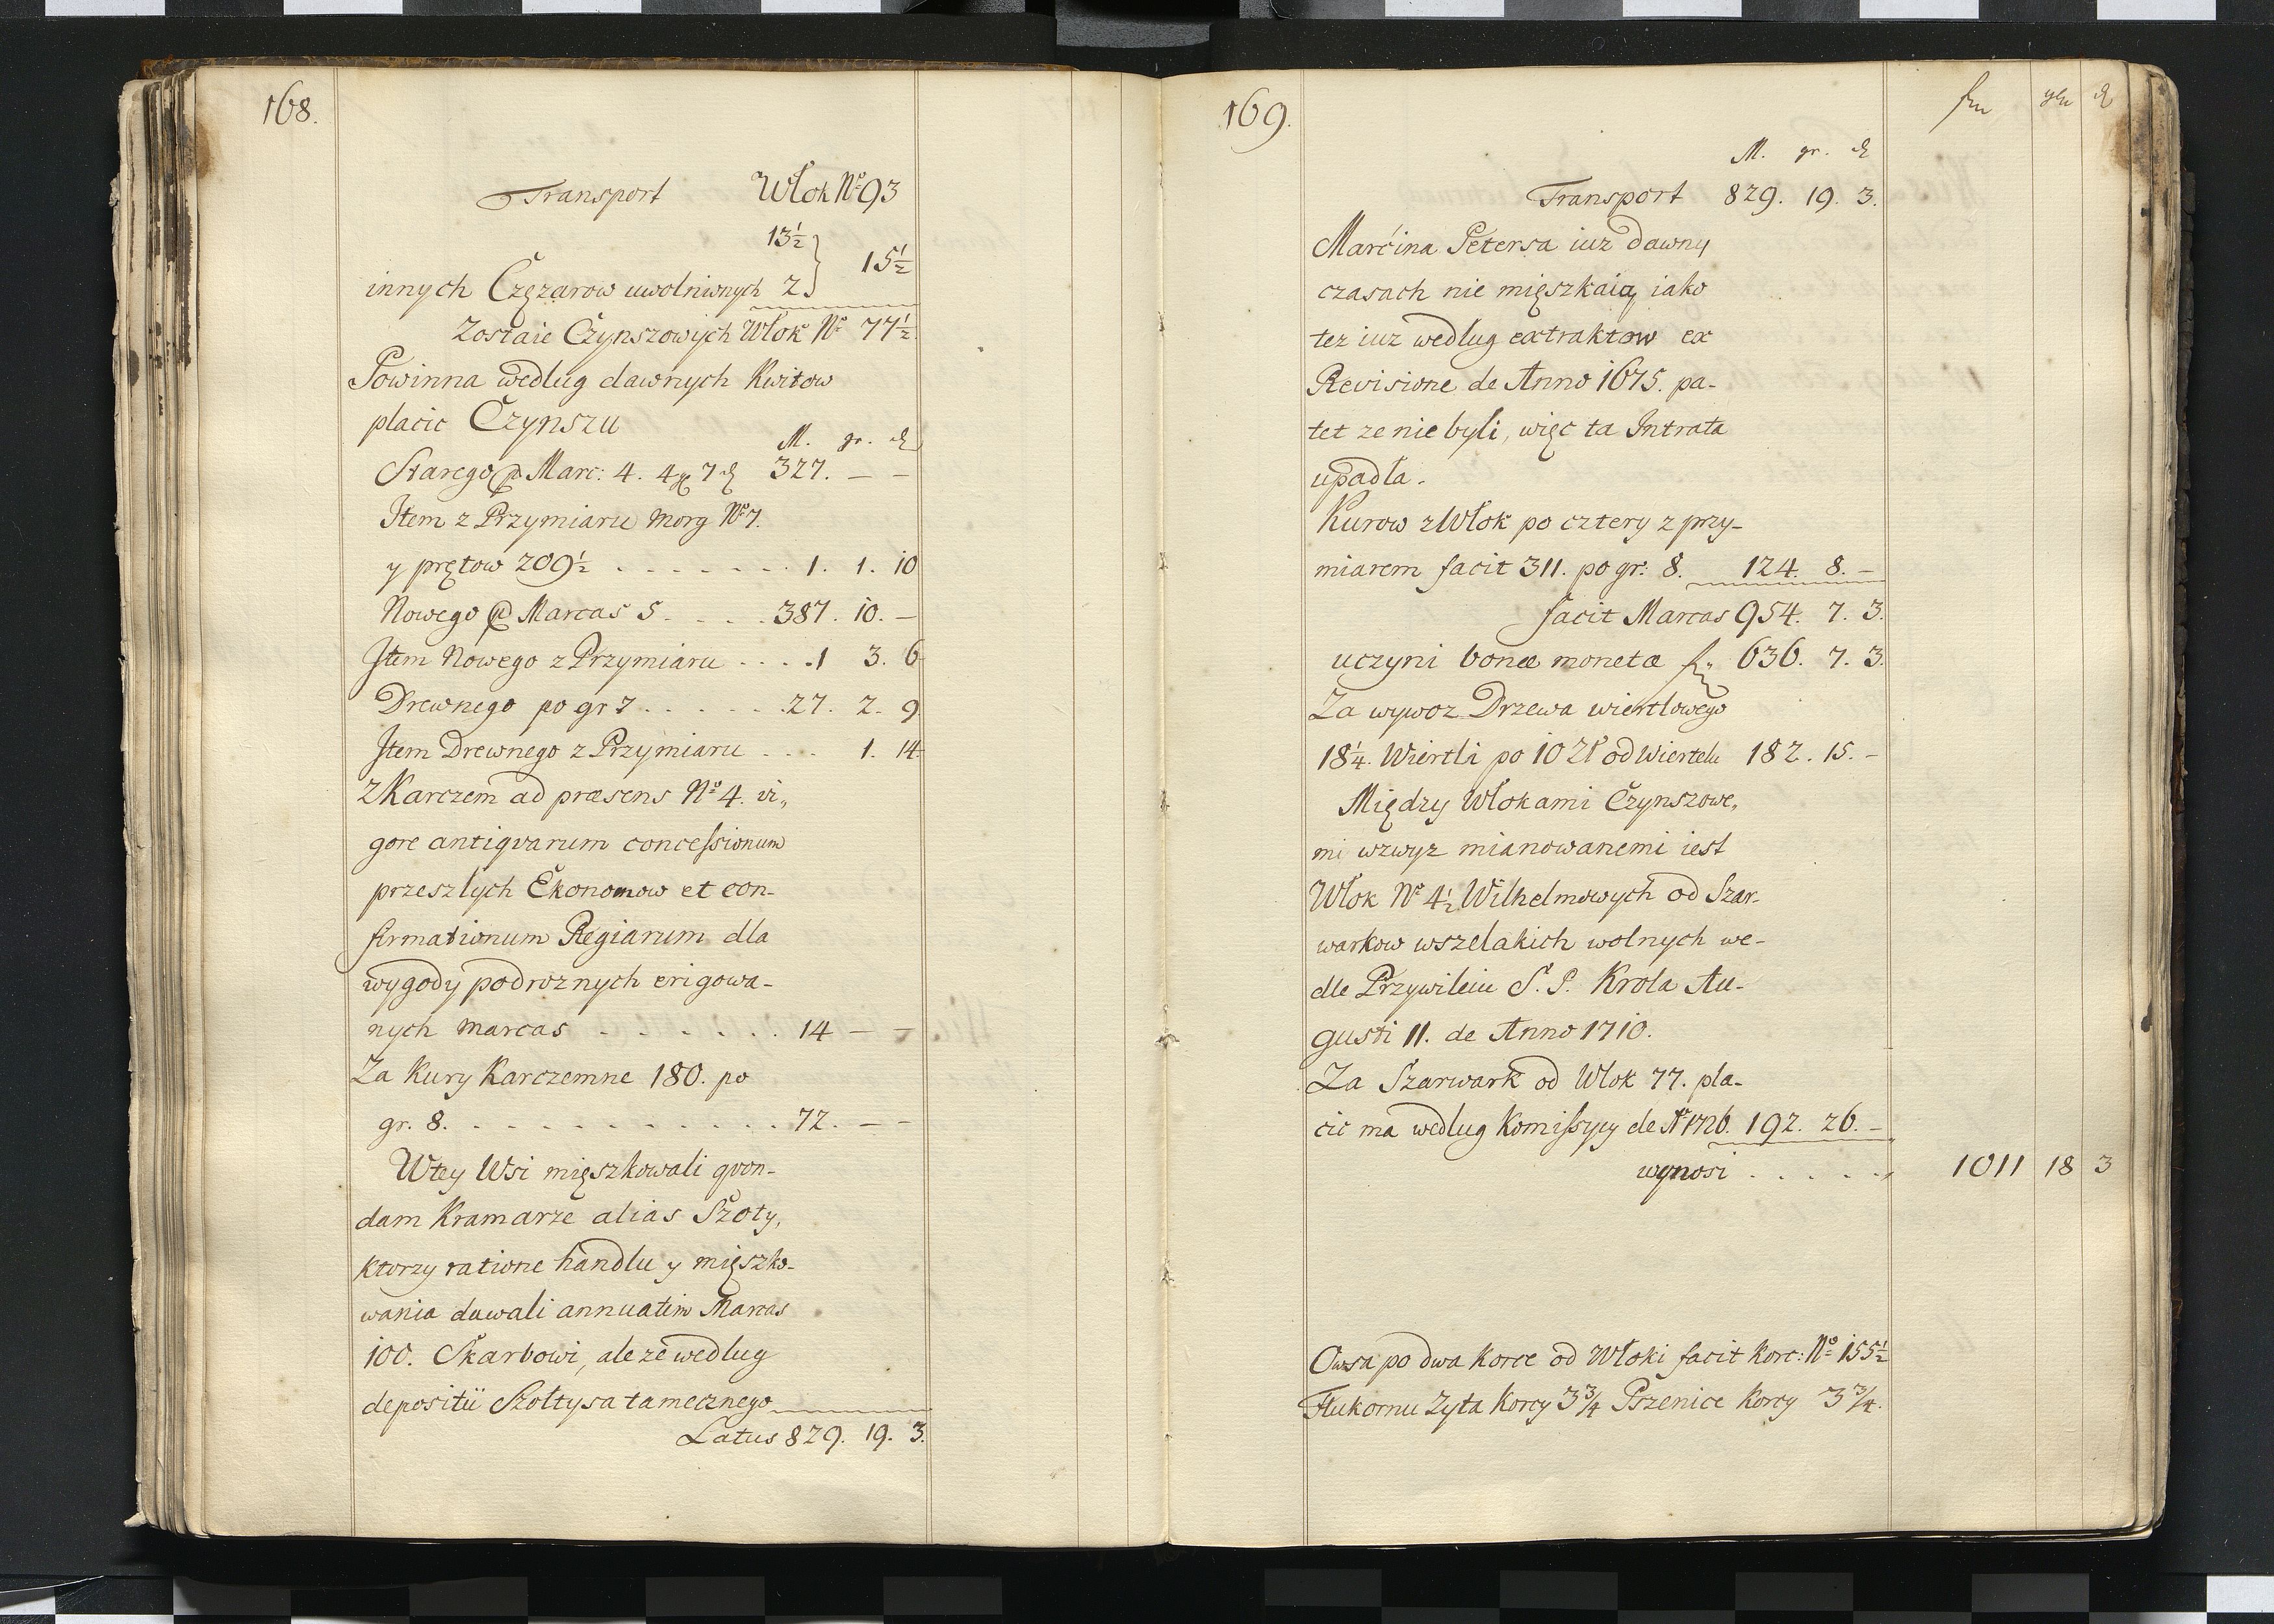 168.
Transport Włok Nº 93
13½
innych Czężarow uwolniwnych 2 } 15½
Zostaie Czynszowych Włok Nº 77½
Powinna według dawnych Kwitow
płacic Czynszu
M. gr. ₰
Starego @ Marc: 4. 4 gr 7 ₰ 327. — —
Item z Przymiaru Morg Nº 7.
y prętow 209½ . . . . . . . 1. 1. 10
Nowego @ Marcas 5 . . . . 387. 10. —
Item Nowego z Przymiaru . . . . 1 3. 6
Drewnego po gr 7 . . . . . . 27. 2. 9
Item Drewnego z Przymiaru . . . . 1. 14
Z Karczem ad præsens Nº 4. vi„
gore antiqvarum concessionum
przeszłych Ekonomow et con-
firmationum Regiarum dla
wygody podroznych erigowa-
nych Marcas . . . . . . . 14 — —
Za Kury Karczemne 180. po
gr. 8. . . . . . . . . . . . 72. — —
W tey Wsi mięszkowali qvon-
dam Kramarze alias Szoty,
ktorzy ratione handlu y mięszko-
wania dawali annuatim Marcas
100. Skarbowi, ale że według
depositii Szołtysa tamecznego
Latus 829. 19. 3.
169.
fn gn ₰
M. gr. ₰
Transport 829. 19. 3.
Marcina Petersa iuz dawny
czasach nie mięszkaią, iako
tez iuz według extraktow ex
Revisione de Anno 1675. pa-
tet ze nie byli, więc ta Intrata
upadła.
Kurow z Włok po cztery z przy-
miarem facit 311. po gr: 8. 124. 8. —
facit Marcas 954. 7. 3.
uczyni bonæ monetæ fn 636. 7. 3.
Za wywoz Drzewa wiertlowego
18¼. Wiertli po 10 Zł od Wiertelu 182. 15. —
Między Włokami Czynszowe„
mi wzwyz mianowanemi iest
Włok Nº 4½ Wilhelmowych od Szar-
warkow wszelakich wolnych we-
dle Przywileiu S. P. Krola Au-
gusti II. de Anno 1710.
Za Szarwark od Włok 77. pła-
cic ma według Komissyy de Aº 1726. 192. 26. —
wynosi . . . . . 1011 18 3
Owsa po dwa Korce od Włoki facit Korc: Nº 155½
Flukornu Zyta Korcy 3¾ Pszenice Korcy 3¾.